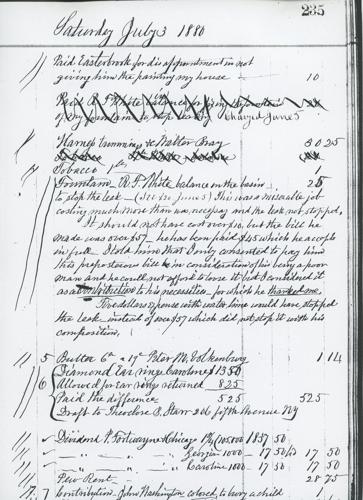 235
Saturday July 3 1880
Paid Easterbrook for disappointment in not
giving him the painting my house 10
charged June 5
Harness trimming & Walter Gray 30 25
Tobacco 1
Fountain R. F. White balance on the basin 25
to stop the leak (See June 5) This was a miserable job
costing much more than was necessary and the leak not stopped.
It should not have cost over 10. but the bill he
made was over $57. he has been paid $45 which he accepts
in full I told him that I only consented to pay him
this preposterous bill in consideration of his being a poor
man and he could not afford to lose it but I considered it
as a contribution to his necessities for which he thanked me.
Two dollars expense with water lime would have stopped
the leak instead of over $57 which did not stop it with his
composition.
5 Butter 6 @ 19 Peter M. Valkenburg 1 14
Diamond Ear rings Caroline $1350
6 Allowed for ear rings returned 825
Paid the difference 525 525
Draft to Theodore B. Starr 206 fifth Avenue NY
Dividend P. Fortwayne & Chicago 105000 1837 50
Georgia 1000 17 50 17 50
Caroline 1000 17 50 17 50
Pew Rent 28 75
7 Contribution John Washington colored, to bury a child